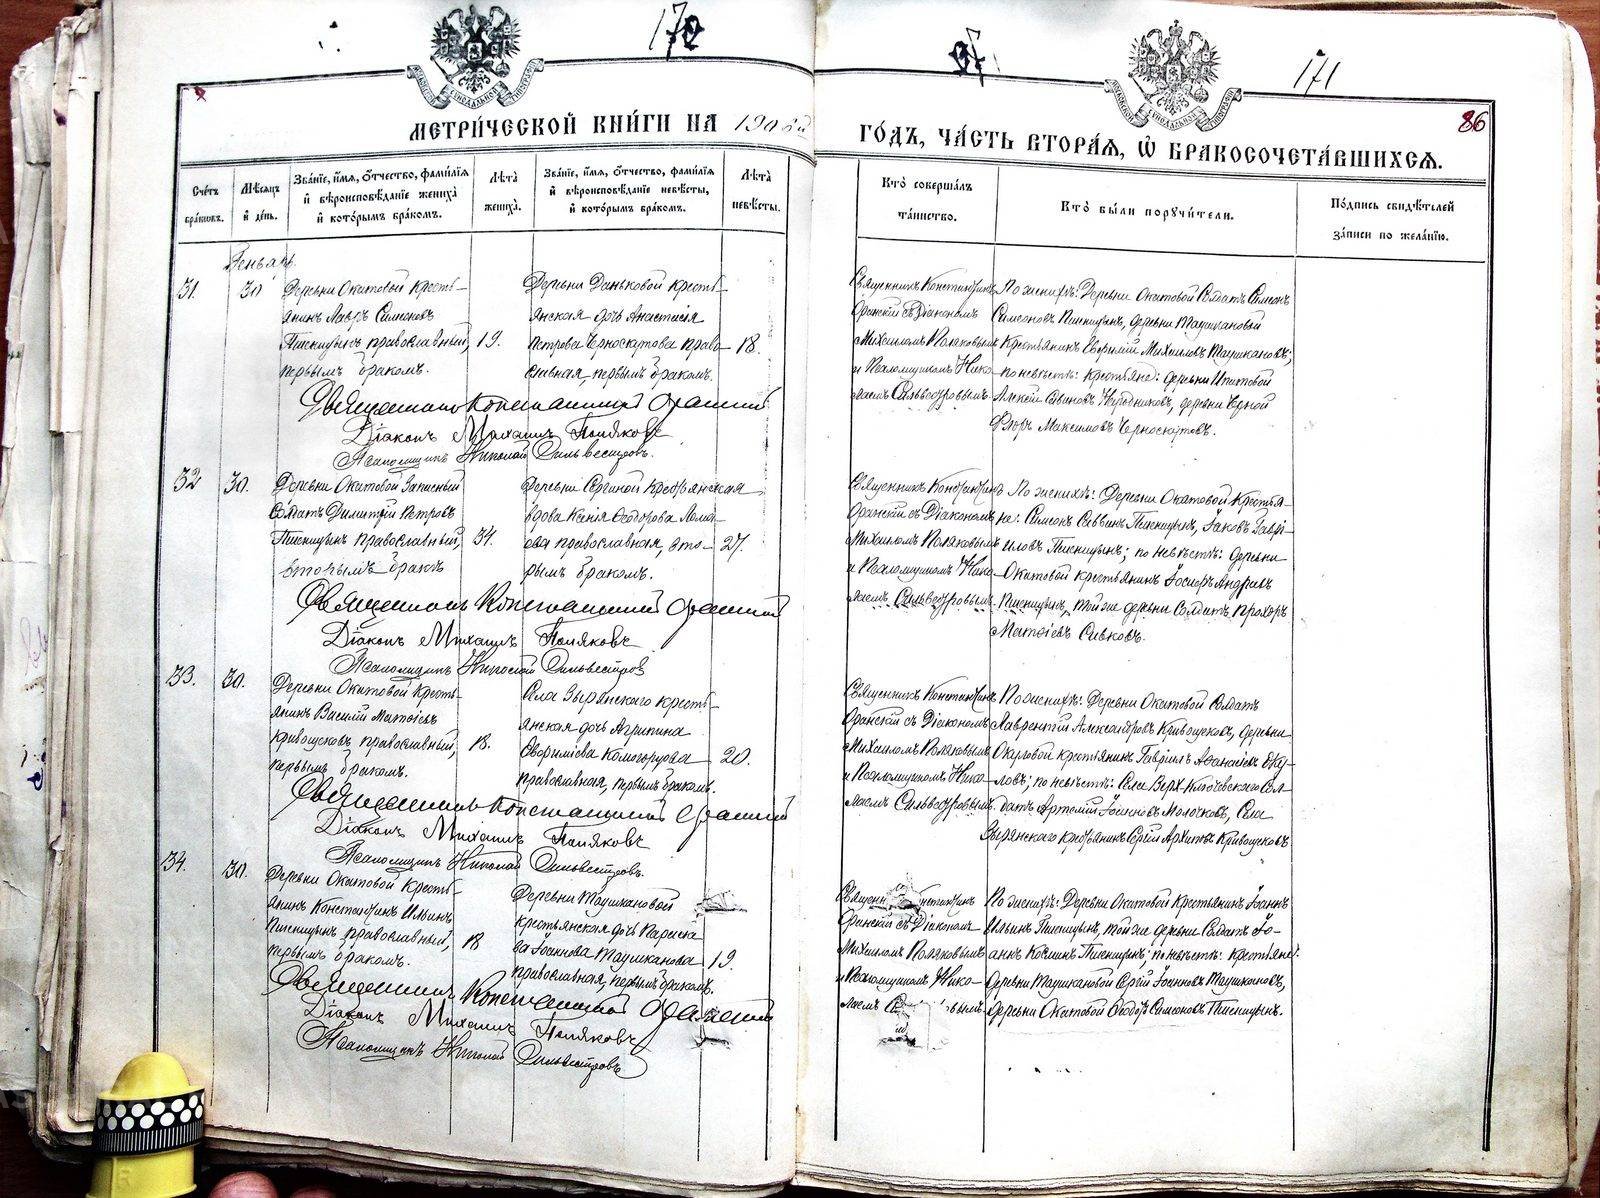 170
171
86
МЕТРИ́ЧЕСКОЙ КНИ́ГИ НА 1908й
ГО́ДЪ, ЧА́СТЬ ВТОРА́Я, Ѡ БРАКОСОЧЕТА́ВШИХСЯ.
Сче́тъ бра́ковъ.
Мѣ́сяцъ и де́нь.
Зва́нїе, и́мя, о́тчество, фами́лїя и вѣроисповѣ́данїе жениха̀ и кото́рымъ бра́комъ.
Лѣ́та жениха̀.
Зва́нїе, и́мя, о́тчество, фами́лїя и вѣроисповѣ́данїе невѣ́сты, и кото́рымъ бра́комъ.
Лѣ́та невѣ́сты.
Кто̀ соверша́лъ та́инство.
Кто̀ бы́ли порꙋчи́тели.
По́дпись свидѣ́телей за́писи по жела́нїю.
Генварь
31.
30
Деревни Окатовой кресть-
янинъ Лавръ Симеоновъ
Пшеницынъ православный,
первымъ бракомъ.
19.
Деревни Даньковой кресть-
янская дочь Анастасія
Петрова Черноскутова право-
славная, первымъ бракомъ.
18.
Священникъ Константинъ
Оранскій съ Діакономъ
Михаиломъ Поляковымъ
и Псаломщикомъ Нико-
лаемъ Сильвестровымъ
По женихѣ: Деревни Окатовой Солдатъ Симеонъ
Симеоновъ Пшеницынъ, деревни Таушкановой
Крестьянинъ Евфимій Михаиловъ Таушкановъ;
по невѣстѣ: крестьяне: деревни Ипатовой
Алексій Саввиновъ деревни
Флоръ Максимовъ Черноскутовъ.
Священникъ Константинъ Оранскій
Діаконъ Михаилъ Поляковъ
Псаломщикъ Николай Сильвестровъ.
32
30.
Деревни Окатовой Запасный
Солдатъ Димитрій Петровъ
Пшеницынъ православный,
вторымъ бракомъ
34.
Деревни Сергиной Крестьянская
вдова Ксенія Ѳеодорова
православная, вто-
рымъ бракомъ.
27.
Священникъ Константинъ
Оранскій съ Діакономъ
Михаиломъ Поляковымъ
и Псаломщикомъ Нико-
лаемъ Сильвестровымъ.
По женихѣ: Деревни Окатовой Крестья-
не: Симеонъ Саввинъ Пшеницынъ, Іаковъ Гаврі-
иловъ Пшеницынъ; по невѣстѣ: деревни
Окатовой крестьянинъ Іосифъ Андреевъ
Пшеницынъ, той же деревни Солдатъ Прохоръ
Матѳіевъ Сивковъ.
Священникъ Константинъ Оранскій
Діаконъ Михаилъ Поляковъ
Псаломщикъ Николай Сильвестровъ
33.
30.
Деревни Окатовой Кресть-
янинъ Василій Матѳіевъ
Кривощековъ православный,
первымъ бракомъ.
18.
Села Зырянскаго кресть-
янская дочь Агрипина
Евфиміева Комогорцева
православная, первымъ бракомъ.
20.
Священникъ Константинъ
Оранскій съ Діакономъ
Михаиломъ Поляковымъ
и Псаломщикомъ Нико-
лаемъ Сильвестровымъ.
По женихѣ: Деревни Окатовой Солдатъ
Лаврентій Александровъ Кривощековъ, деревни
Окуловой крестьянинъ Гавріилъ Аѳанасіевъ Оку-
ловъ; по невѣстѣ: Села Верх-Ключевскаго Сол-
датъ Артемій Іоанновъ Молочковъ, Села
Зырянскаго крестьянинъ Сергій Архиповъ Кривощековъ.
Священникъ Константинъ Оранскій
Діаконъ Михаилъ Поляковъ
Псаломщикъ Николай Сильвестровъ.
34.
30.
Деревни Окатовой кресть-
янинъ Константинъ Ильинъ
Пшеницынъ православный,
первымъ бракомъ.
18
Деревни Таушкановой
крестьянская дочь Параске-
ва Іоаннова Таушканова
православная, первымъ бракомъ.
19.
Священникъ Константинъ
Оранскій съ Діакономъ
Михаиломъ Поляковымъ
и Псаломщикомъ Нико-
лаемъ
По женихѣ: Деревни Окатовой Крестьянинъ Іоаннъ
Ильинъ Пшеницынъ, той же деревни Солдатъ Іо-
аннъ Косминъ Пшеницынъ; по невѣстѣ: крестьяне:
деревни Таушкановой Сергій Іоанновъ Таушкановъ,
деревни Окатовой Ѳеодоръ Симеоновъ Пшеницынъ.
Священникъ Константинъ Оранскій
Діаконъ Михаилъ Поляковъ
Псаломщикъ Николай Сильвестровъ